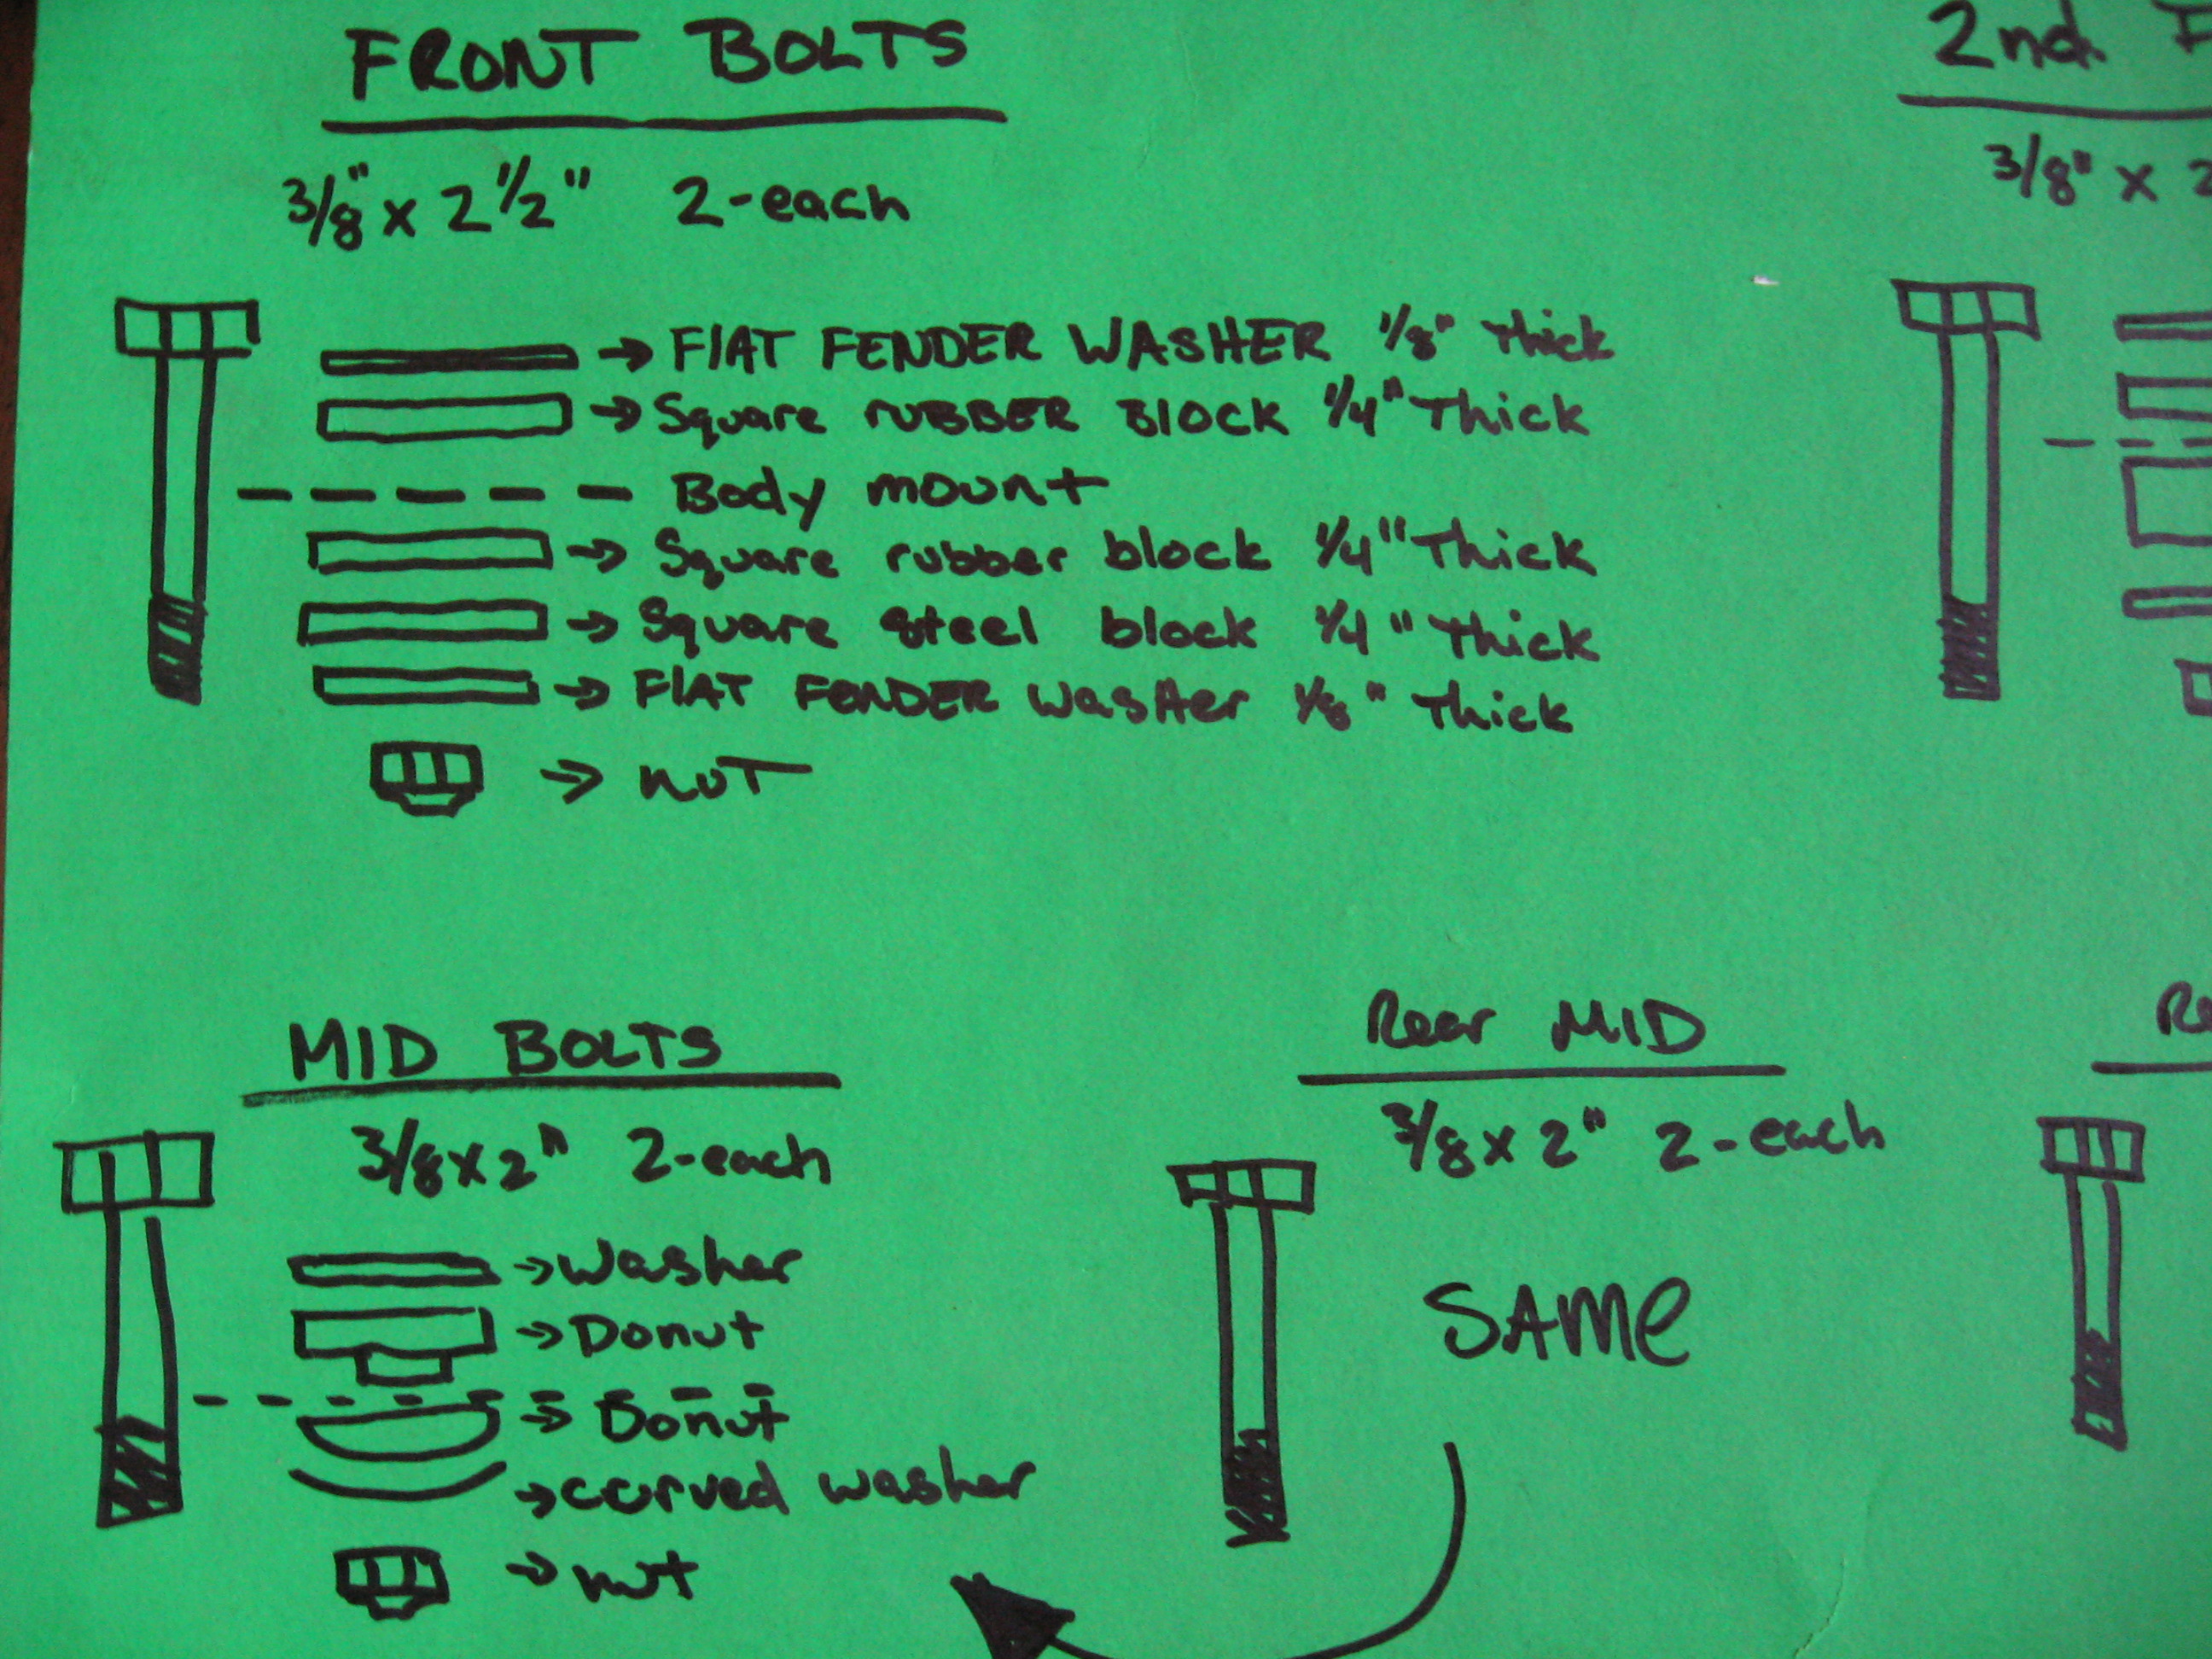 FRONT BOLTS
3/8" x 2 1/2" 2-each
→ FlAT FENDER WASHER 1/8" Thick
→ Square RUBBER BlOCK 1/4" Thick
Body mount
→ Square rubber block 1/4" Thick
→ Square steel block 1/4" Thick
→ FlAT FENDER WasHer 1/8" Thick
→ nuT
2nd
3/8" x 2
MID BOLTS
3/8 x 2" 2-each
→ Washer
→ Donut
→ Donut
→ curved washer
→ nut
Rear MID
3/8 x 2" 2-each
SAMe
Re